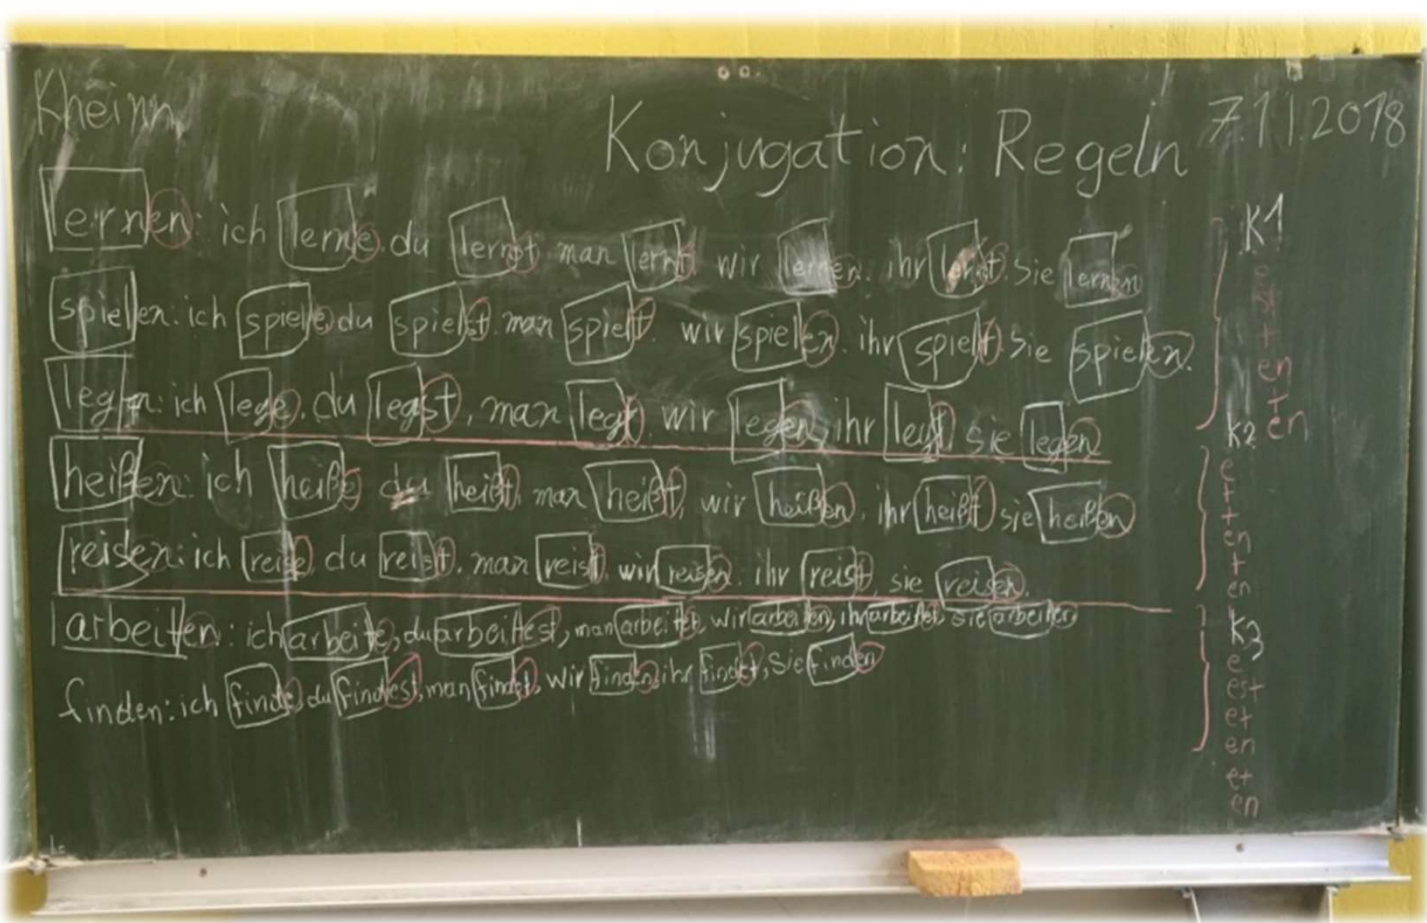 Konjugation: Regeln 7.11.2018
lernen: ich lerne du lernst man lernt wir lernen. ihr lernt. sie lernen
spielen: ich spiele, du spielst. man spielt. wir spielen. ihr spielt. Sie spielen.
legen: ich lege. du legst, man legt, wir legen, ihr legt, sie legen
heißen: ich heiße du heißt, man heißt, wir heißen, ihr heißt sie heißen
reisen: ich reise, du reist. man reist. wir reisen. ihr reist, sie reisen.
arbeiten: ich arbeite, du arbeitest, man arbeitet, wir arbeiten, ihr arbeitet, sie arbeiten
finden: ich finde, du findest, man findet, wir finden, ihr findet, Sie finden
K1
e
st
t
en
t
en
K2
e
t
t
en
t
en
K3
e
est
et
en
et
en